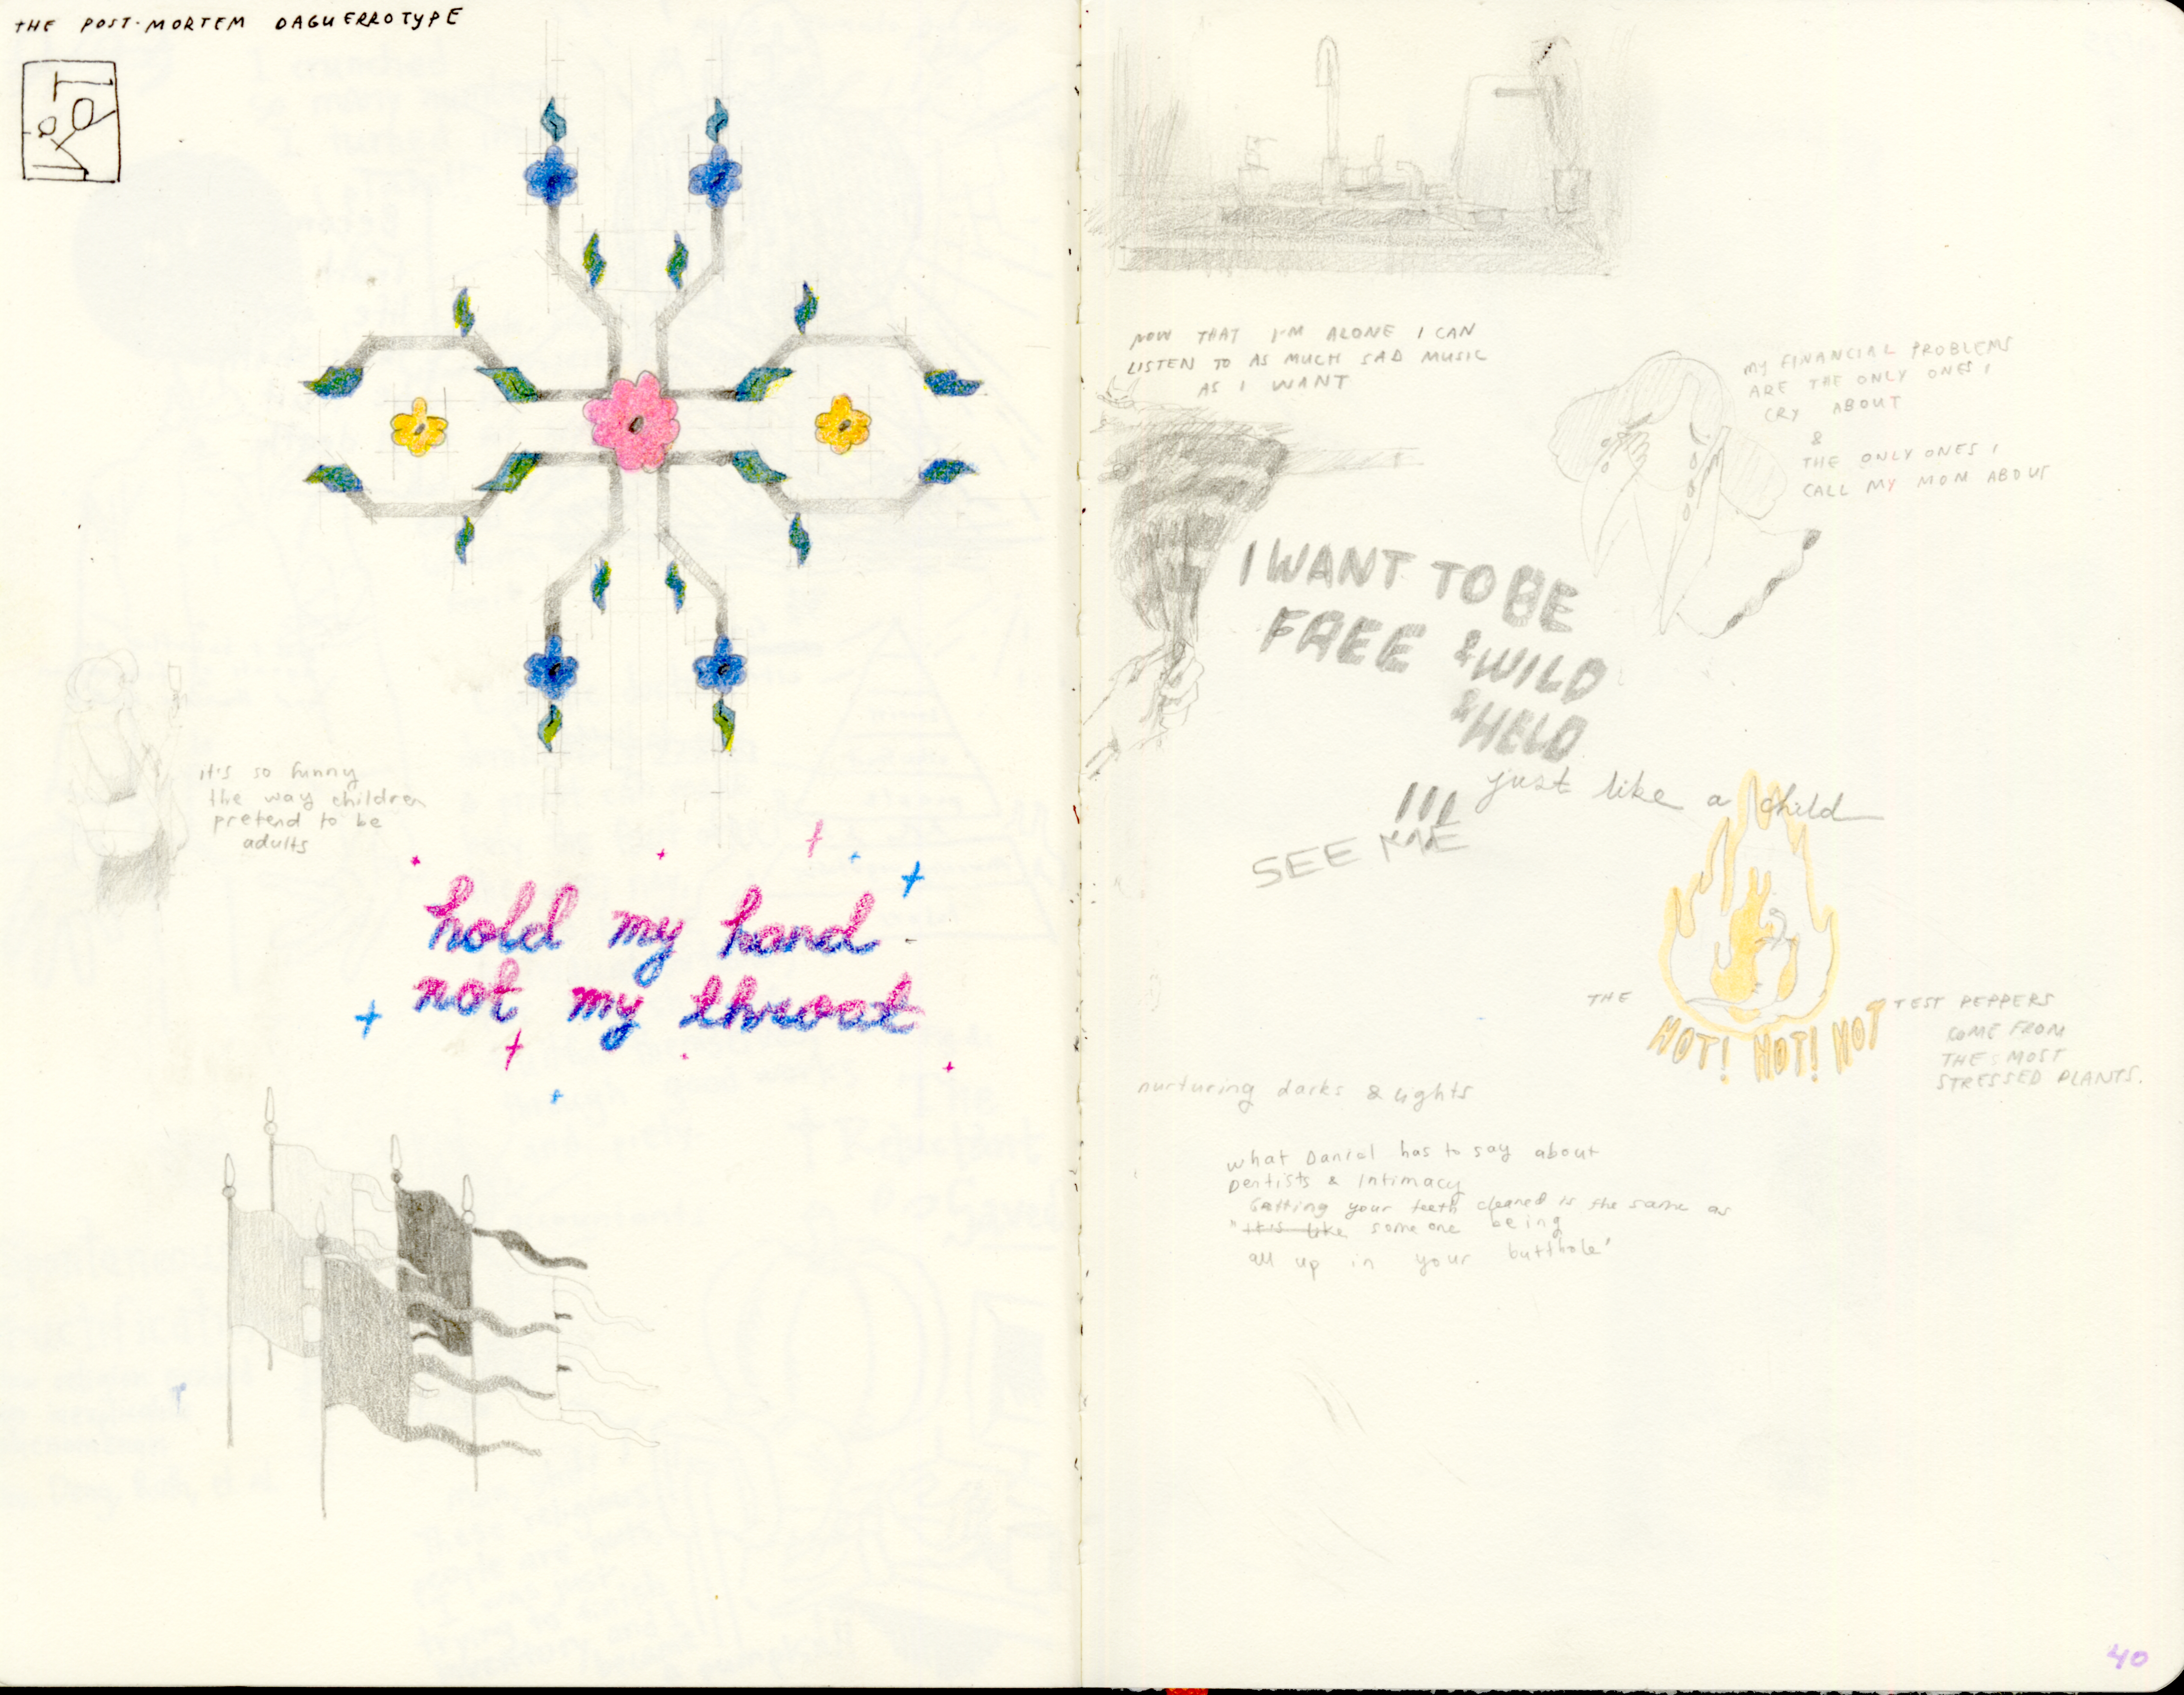 THE POST-MORTEM DAGUERROTYPE
it's so funny
the way children
pretend to be
adults
hold my hand
not my throat
NOW THAT I'M ALONE I CAN
LISTEN TO AS MUCH SAD MUSIC
AS I WANT
MY FINANCIAL PROBLEMS
ARE THE ONLY ONES I
CRY ABOUT
&
THE ONLY ONES I
CALL MY MOM ABOUT
I WANT TO BE
FREE & WILD
& HELD
just like a child
SEE ME
THE
HOT! HOT! HOT
TEST PEPPERS
COME FROM
THE MOST
STRESSED PLANTS.
nurturing darks & lights
what Daniel has to say about
Dentists & Intimacy
Getting your teeth cleaned is the same as
"it's like someone being
all up in your butthole"
40